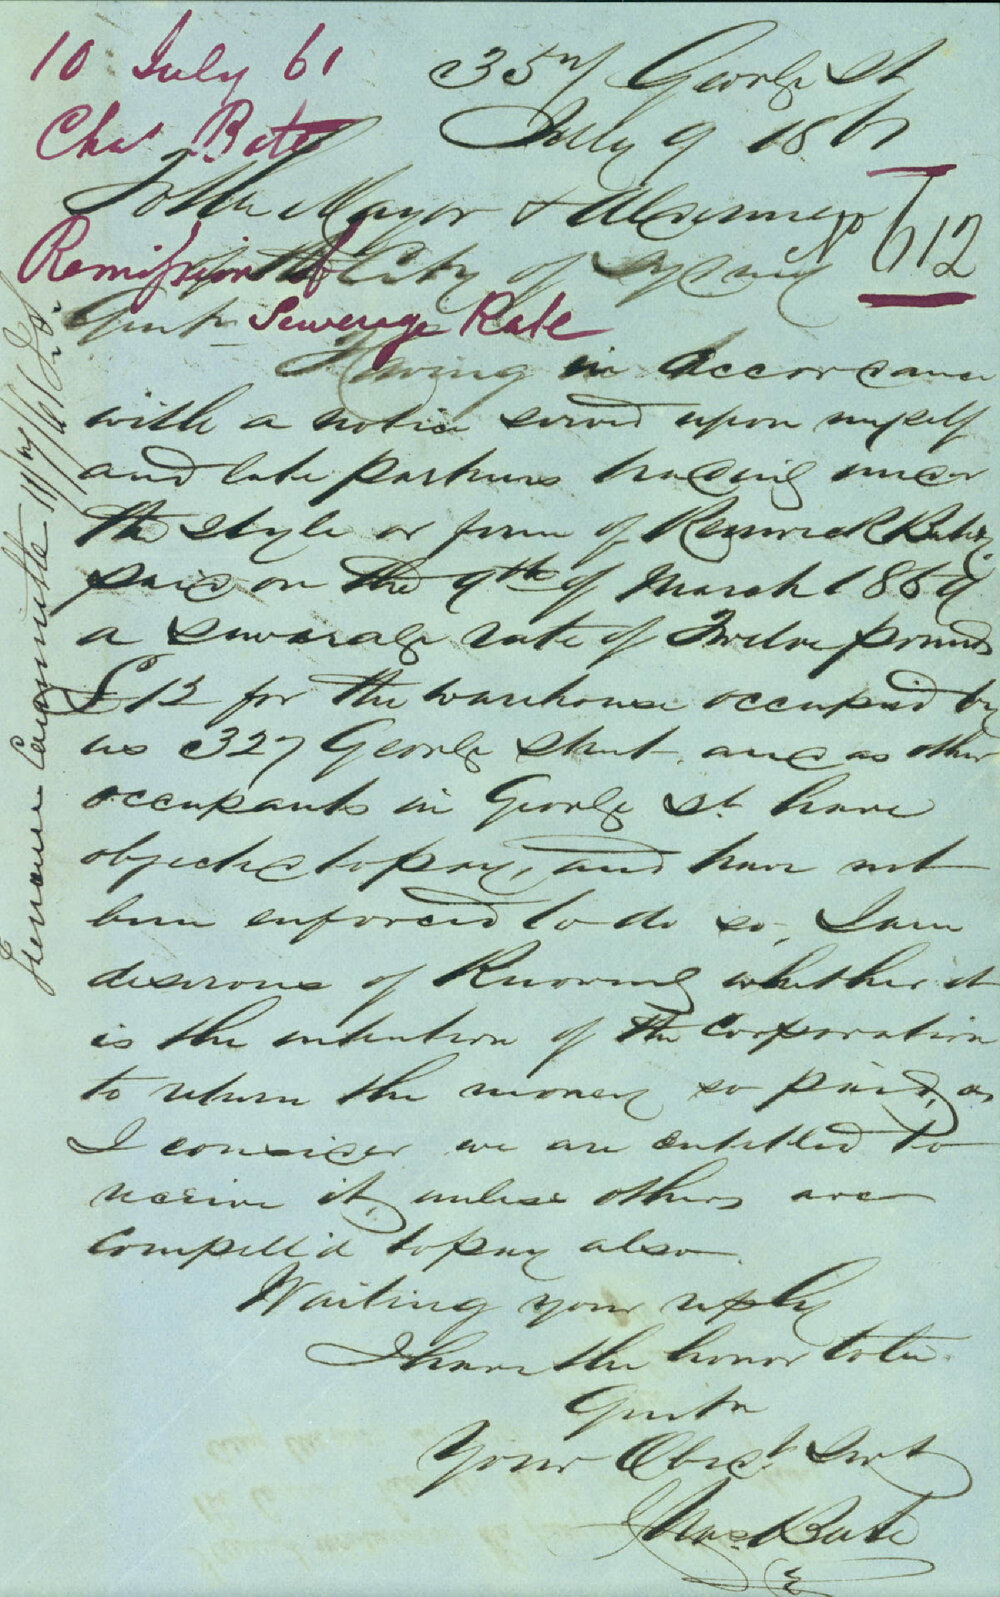 10 July 61
Chas Bate
Remission of
Sewerage Rate
No 612
357 George St
July 9 1861
To the Mayor & Aldermen
of the City of Sydney
Gentn
Having in accordance
with a notice served upon myself
and late partners trading under
the style or firm of
paid on the 9th of March
a sewerage rate of Twelve pounds
£12 for the warehouse occupied by
us 327 George Street, and as other
occupants in George St. have
objected to pay, and have not
been enforced to do so, I am
desirous of knowing whether it
is the intention of the Corporation
to return the money so paid, as
I consider we are entitled to
receive it, unless others are
compell'd to pay also
Waiting your reply
I have the honor to be
Gentn
Your Obedt Servt
Chas Bate
Finance Committee 11/7/61